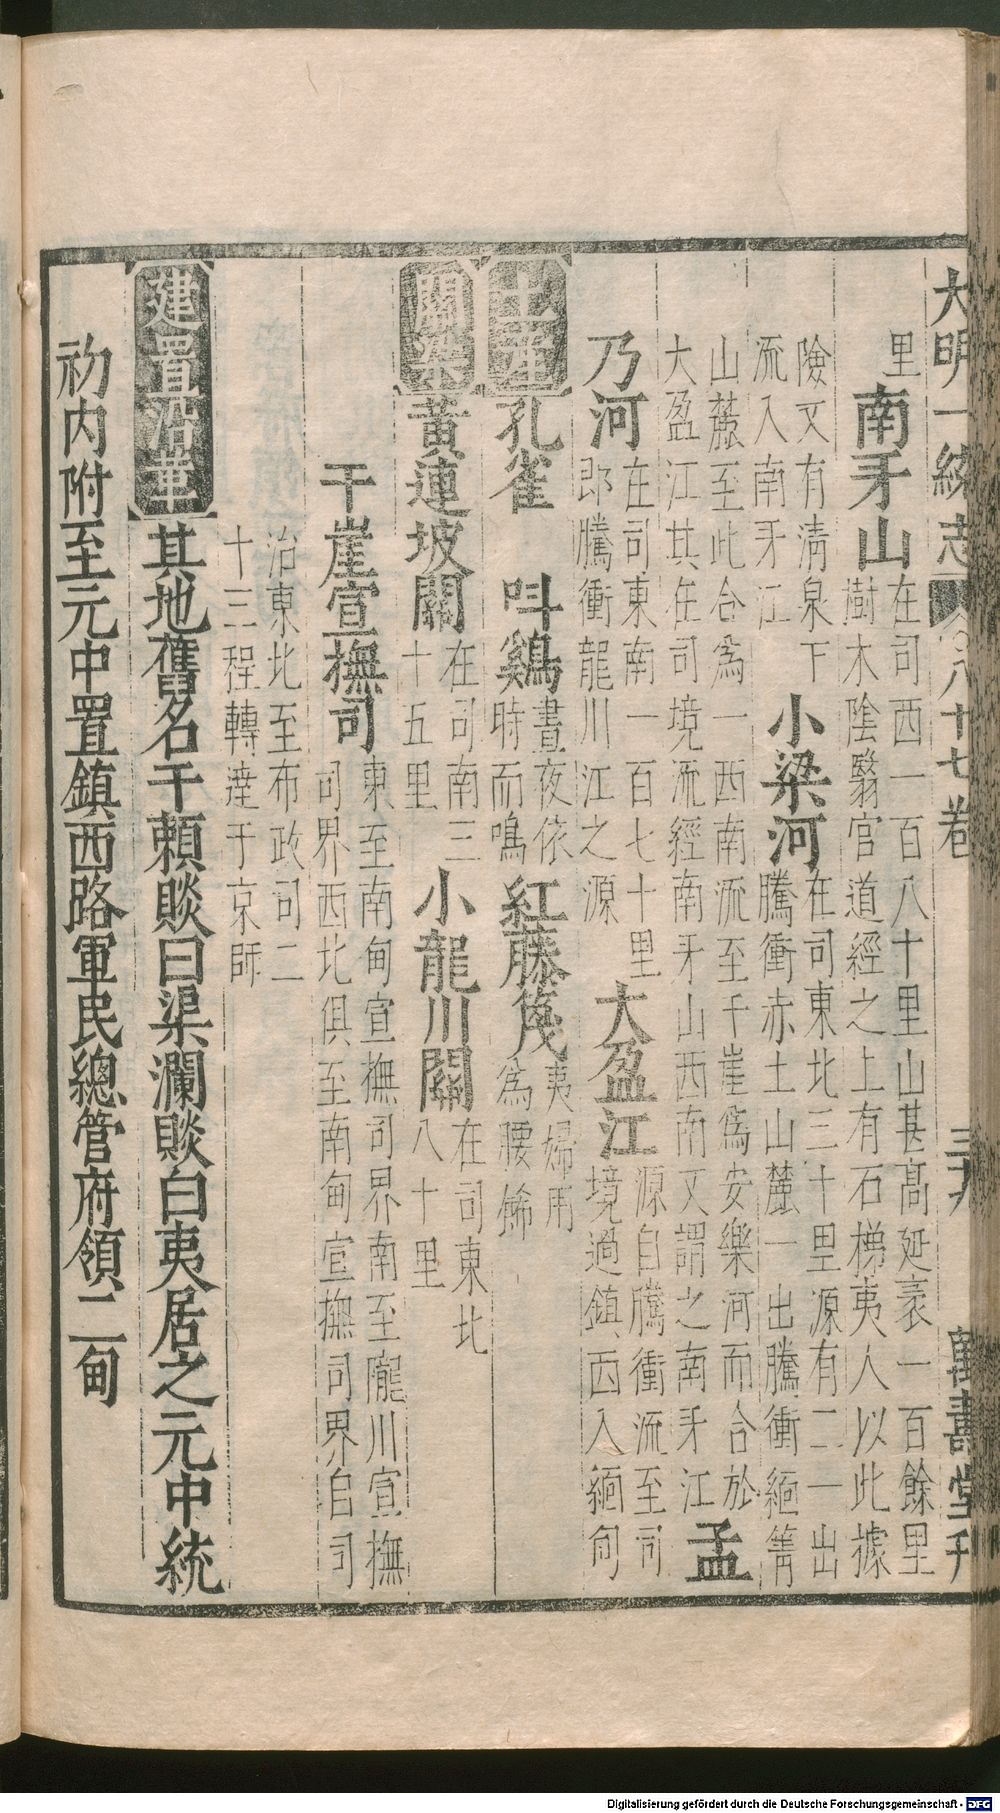 大明一統志 八十七卷 三九 萬壽堂刊
里南牙山在司西一百八十里山甚高延袤一百餘里
樹木陰翳官道經之上有石梯夷人以此據
險又有清泉下
流入南牙江小梁河在司東北三十里源有二一出
騰衝赤土山麓一出騰衝緬箐
山麓至此合爲一西南流至干崖爲安樂河而合於
大盈江其在司境流經南牙山西南又謂之南牙江孟
乃河在司東南一百七十里
即騰衝龍川江之源大盈江源自騰衝流至司
境過鎮西入緬甸
土產孔雀 叫鷄晝夜依
時而鳴紅藤篾夷婦用
爲腰飾
關梁黃連坡關在司南三
十五里小龍川關在司東北
八十里
干崖宣撫司東至南甸宣撫司界南至隴川宣撫
司界西北俱至南甸宣撫司界自司
治東北至布政司二
十三程轉達于京師
建置沿革其地舊名干賴賧曰渠瀾賧白夷居之元中統
初內附至元中置鎮西路軍民總管府領二甸
Digitalisierung gefördert durch die Deutsche Forschungsgemeinschaft - DFG